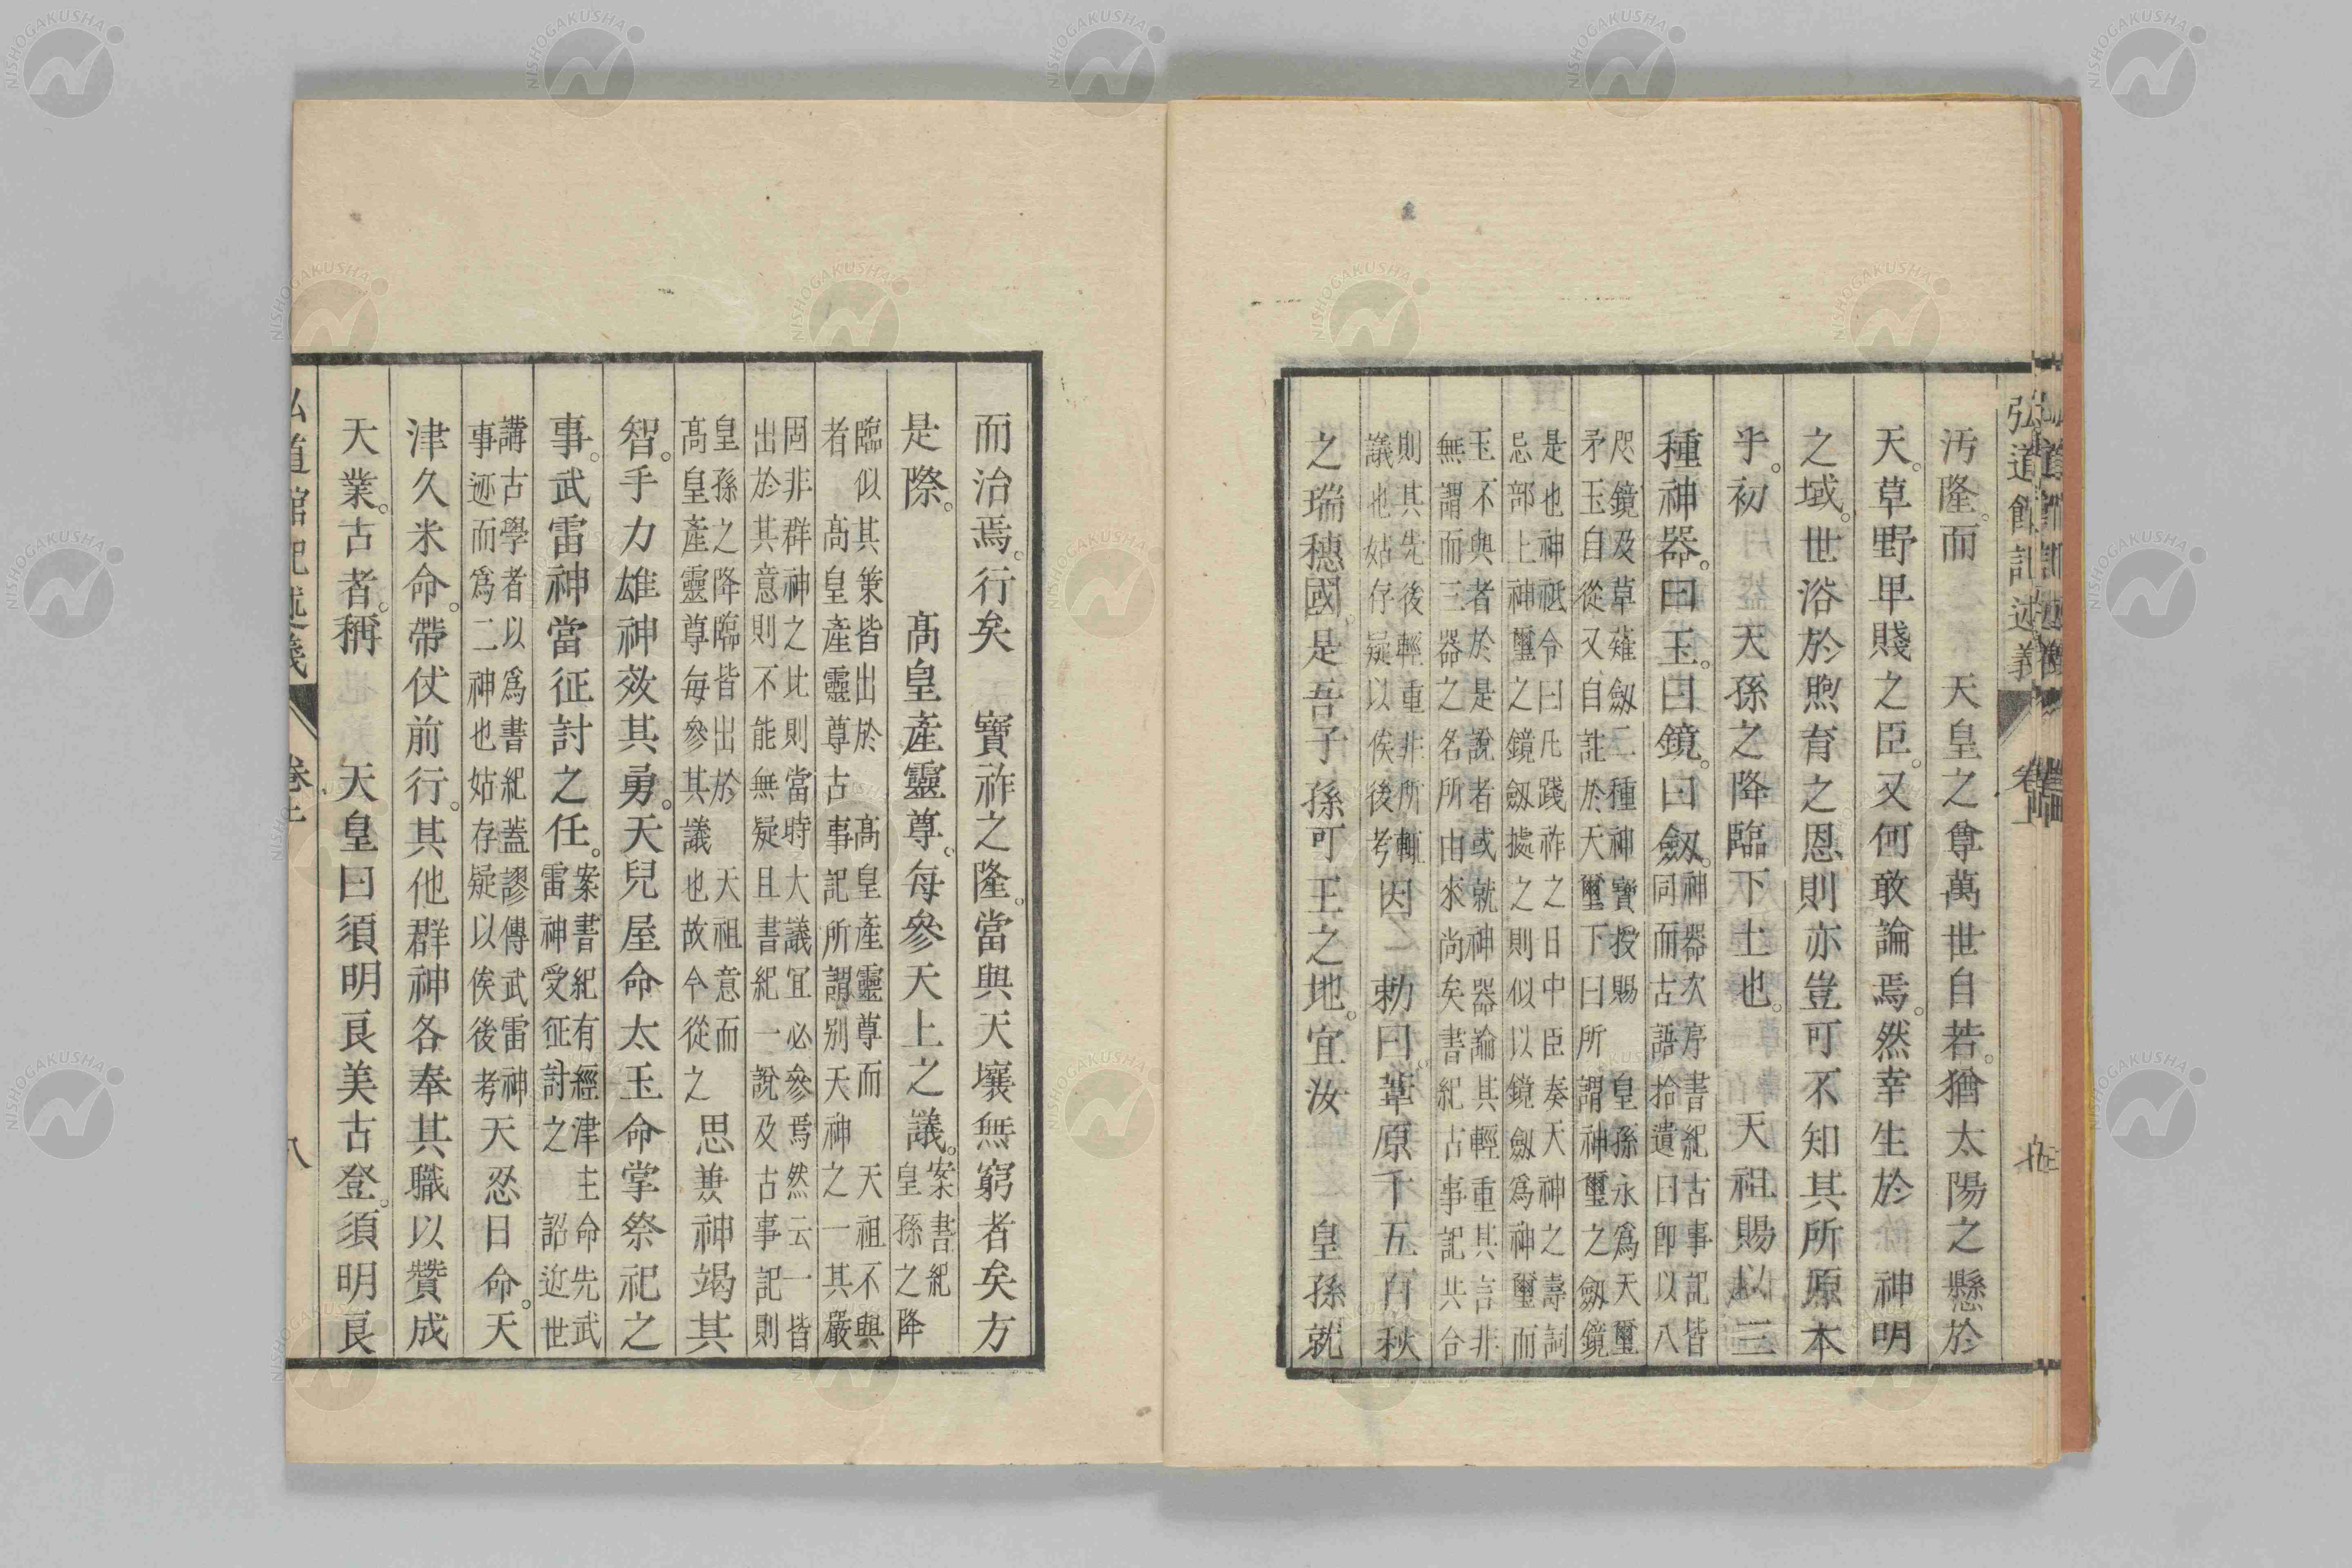 弘道館記述義
卷上
汚隆。而　天皇之尊萬世自若。猶太陽之懸於
天。草野卑賤之臣。又何敢論焉。然幸生於　神明
之域。世浴於煦育之恩則亦豈可不知其所原本
乎。初　天孫之降臨下土也。　天祖賜以三
種神器。曰玉。曰鏡。曰劔。神器次序書紀古事記皆
同而古語拾遺曰卽以八
咫鏡及草薙劔二種神寶授賜　皇孫永爲天璽
矛玉自從又自註於天璽下曰所謂神璽之劔鏡
是也神祇令曰凡踐祚之日中臣奏天神之壽詞
忌部上神璽之鏡劔據之則似以鏡劔爲神璽而
玉不與者於是說者或就神器論其輕重其言非
無謂而三器之名所由來尚矣書紀古事記共合
則其先後輕重非所輒
議也姑存疑以俟後考
因　勅曰。葦原千五百秋
之瑞穗國。是吾子孫可王之地。宜汝　皇孫就
而治焉。行矣　寶祚之隆。當與天壤無窮者矣方
是際。　高皇產靈尊。每參天上之議。案書紀
皇孫之降
臨似其策皆出於　高皇產靈尊而　天祖不與
者　高皇產靈尊古事記所謂別天神之一其嚴
固非群神之比則當時大議冝必參焉然云一皆
出於其意則不能無疑且書紀一說及古事記則
皇孫之降臨皆出於　天祖意而
高皇產靈尊每參其議也故今從之
思兼神竭其
智。手力雄神效其勇。天兒屋命太玉命掌祭祀之
事。武雷神當征討之任。案書紀有經津主命先武
雷神受征討之　詔近世
講古學者以爲書紀蓋謬傳武雷神
事迹而爲二神也姑存疑以俟後考
天忍日命。天
津久米命。帶仗前行。其他群神各奉其職以贊成
天業。古者。稱　天皇曰須明良美古登。須明良
弘道館記述義
卷上
八